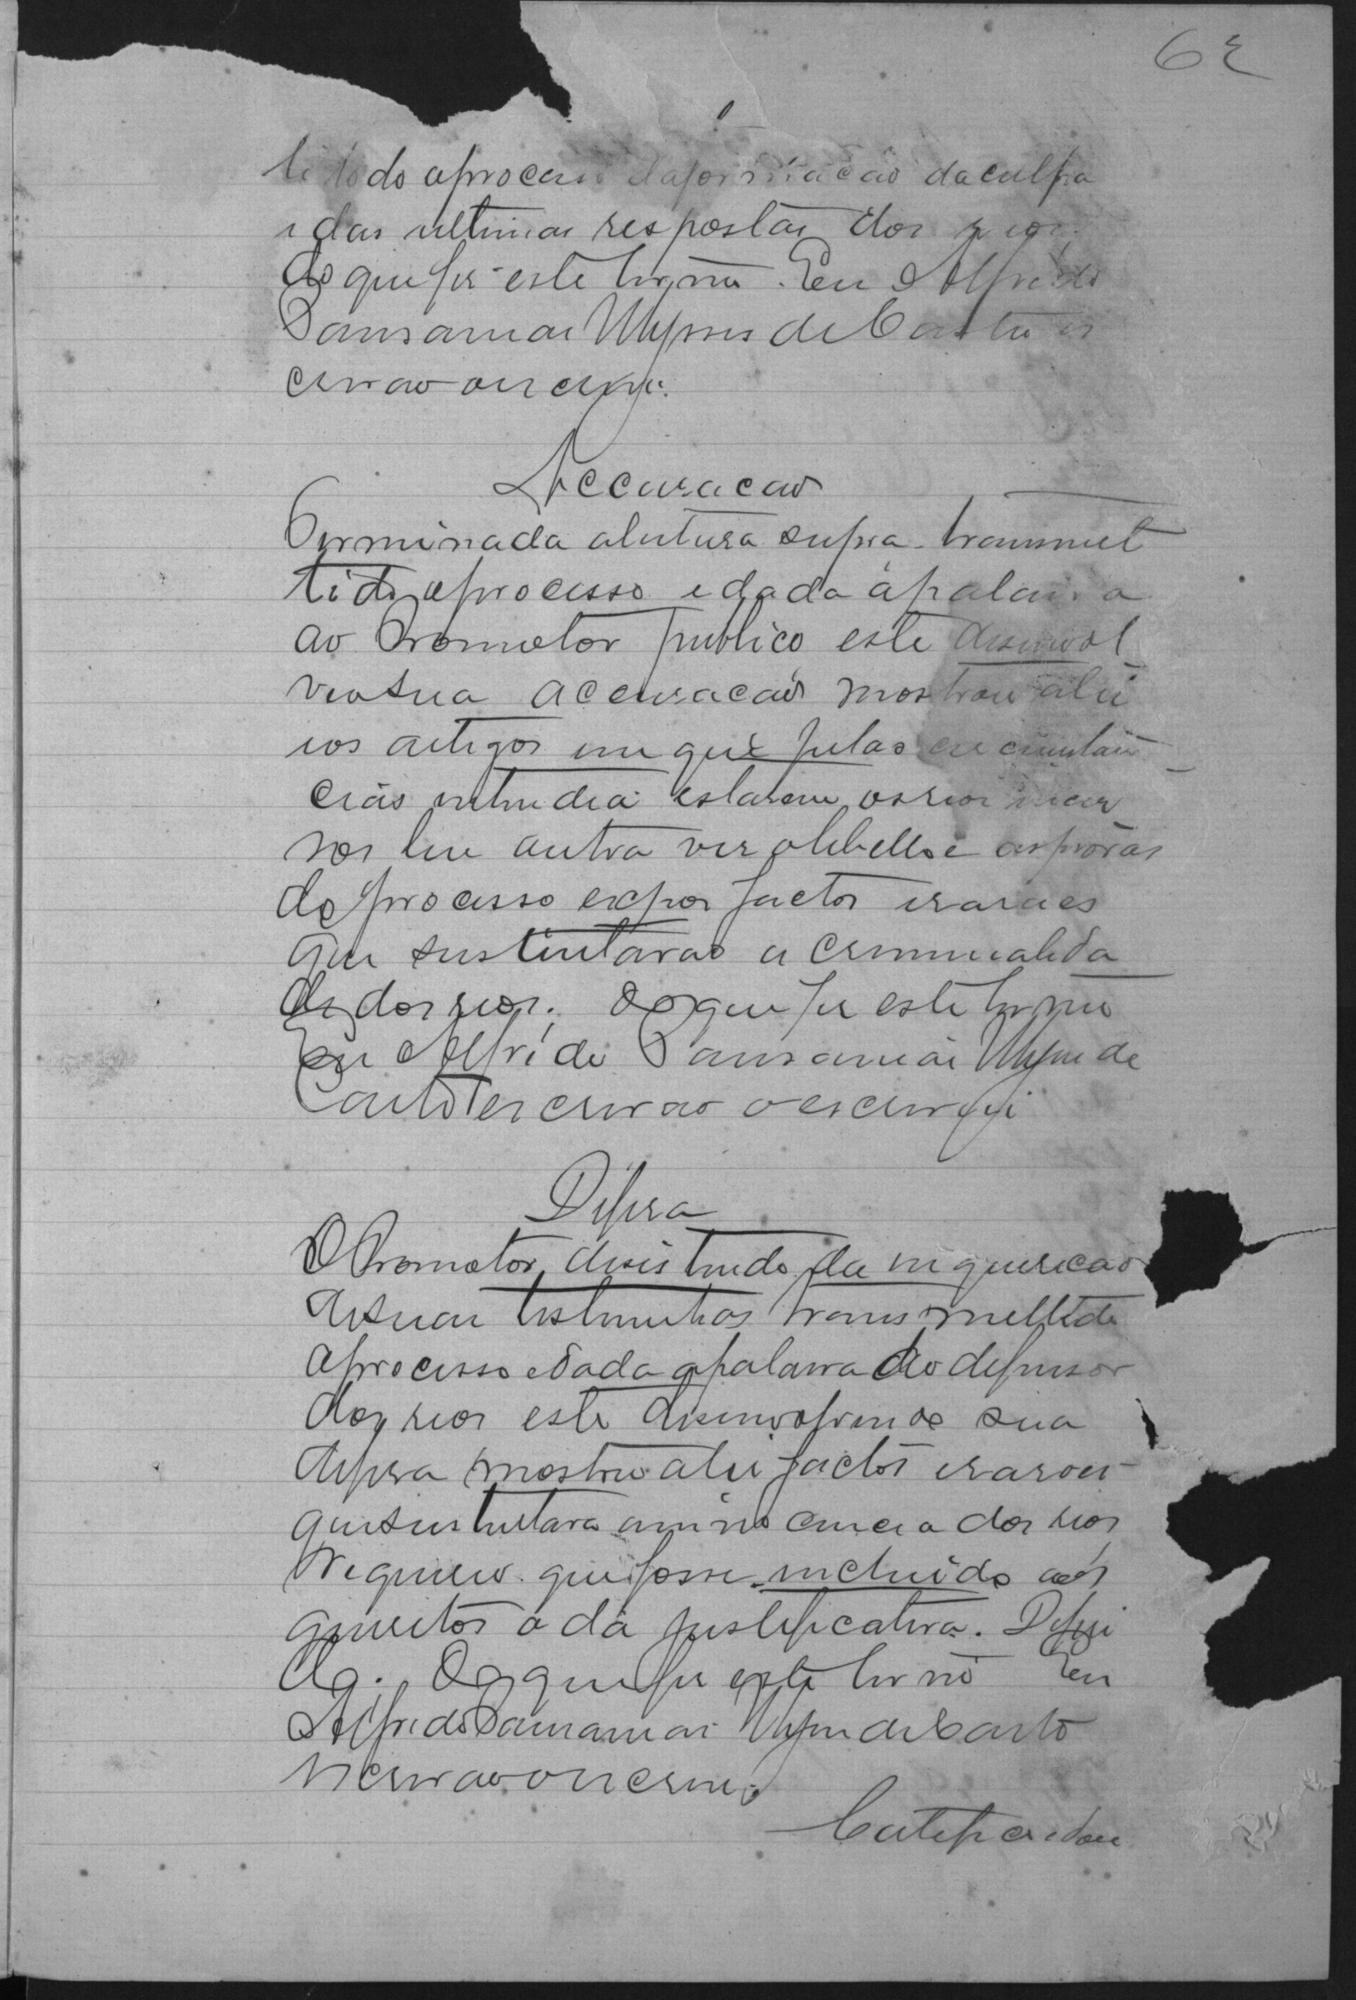 62
do o processo da formação da culpa
e das ultimas respostas dos reos,
do que fiz este termo. Eu Alfredo
Ulysses de Castro es
crivão o escrevi.
Accusacao
Terminada a leitura supra transmet
tido o processo e dada a palavra
ao Promotor publico este desenvol
veo sua accusacaò mostrou a lei
e os artigos em que pelas circunstan
cias entendia estarem os reos incur
sos leu outra vez o libello e as provas
do processo expos factos e razoes
que sustentavao a criminalida
de dos reos. Do que fiz este termo
Eu Alfredo Ulysses de
Castro escrivao o escrevi
Defesa
O Promotor desistindo da inquiricao
de suas testemunhas transmettido
o processo e dada a palavra ao defensor
dos reos este desenvolvendo sua
defesa mostrou a lei factos e razoes
que sustentava a innocencia dos reos
Requereu que fosse incluido aos
quesitos o da justificativa. Deferi
do. Do que fiz este termo Eu
Alfredo Ulysses de Castro
escrivao o escrevi.